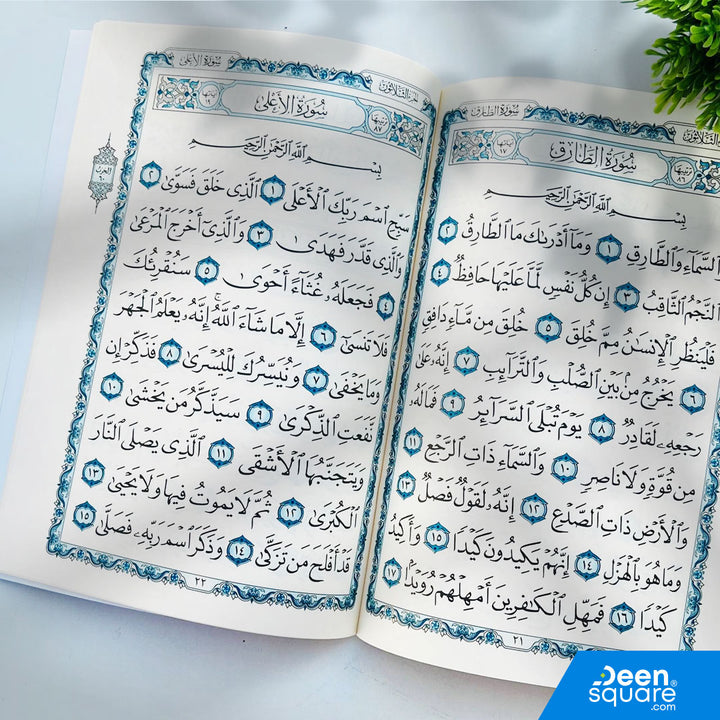 سُورَةُ الطَّارِقِ
ترتيبها ٨٦ سُورَةُ الطَّارِقِ آياتها ١٧
بِسْمِ ٱللَّهِ ٱلرَّحْمَٰنِ ٱلرَّحِيمِ
ٱلسَّمَآءِ وَٱلطَّارِقِ ١ وَمَآ أَدْرَىٰكَ مَا ٱلطَّارِقُ ٢
ٱلنَّجْمُ ٱلثَّاقِبُ ٣ إِن كُلُّ نَفْسٍ لَّمَّا عَلَيْهَا حَافِظٌ ٤
فَلْيَنظُرِ ٱلْإِنسَٰنُ مِمَّ خُلِقَ ٥ خُلِقَ مِن مَّآءٍ دَافِقٍ
٦ يَخْرُجُ مِنۢ بَيْنِ ٱلصُّلْبِ وَٱلتَّرَآئِبِ ٧ إِنَّهُۥ عَلَىٰ
رَجْعِهِۦ لَقَادِرٌ ٨ يَوْمَ تُبْلَى ٱلسَّرَآئِرُ ٩ فَمَا لَهُۥ
مِن قُوَّةٍ وَلَا نَاصِرٍ ١٠ وَٱلسَّمَآءِ ذَاتِ ٱلرَّجْعِ ١١
وَٱلْأَرْضِ ذَاتِ ٱلصَّدْعِ ١٢ إِنَّهُۥ لَقَوْلٌ فَصْلٌ ١٣
وَمَا هُوَ بِٱلْهَزْلِ ١٤ إِنَّهُمْ يَكِيدُونَ كَيْدًا ١٥ وَأَكِيدُ
كَيْدًا ١٦ فَمَهِّلِ ٱلْكَٰفِرِينَ أَمْهِلْهُمْ رُوَيْدًۢا ١٧
٢١
الجزء الثلاثون سُورَةُ الأَعْلَى
ترتيبها ٨٧ سُورَةُ الأَعْلَى آياتها ١٩
بِسْمِ ٱللَّهِ ٱلرَّحْمَٰنِ ٱلرَّحِيمِ
سَبِّحِ ٱسْمَ رَبِّكَ ٱلْأَعْلَى ١ ٱلَّذِى خَلَقَ فَسَوَّىٰ ٢
وَٱلَّذِى قَدَّرَ فَهَدَىٰ ٣ وَٱلَّذِىٓ أَخْرَجَ ٱلْمَرْعَىٰ
٤ فَجَعَلَهُۥ غُثَآءً أَحْوَىٰ ٥ سَنُقْرِئُكَ
فَلَا تَنسَىٰٓ ٦ إِلَّا مَا شَآءَ ٱللَّهُ ۚ إِنَّهُۥ يَعْلَمُ ٱلْجَهْرَ
وَمَا يَخْفَىٰ ٧ وَنُيَسِّرُكَ لِلْيُسْرَىٰ ٨ فَذَكِّرْ إِن
نَّفَعَتِ ٱلذِّكْرَىٰ ٩ سَيَذَّكَّرُ مَن يَخْشَىٰ ١٠
وَيَتَجَنَّبُهَا ٱلْأَشْقَى ١١ ٱلَّذِى يَصْلَى ٱلنَّارَ
ٱلْكُبْرَىٰ ١٢ ثُمَّ لَا يَمُوتُ فِيهَا وَلَا يَحْيَىٰ ١٣
قَدْ أَفْلَحَ مَن تَزَكَّىٰ ١٤ وَذَكَرَ ٱسْمَ رَبِّهِۦ فَصَلَّىٰ ١٥
٢٢
الحزب
Deen
square
.com